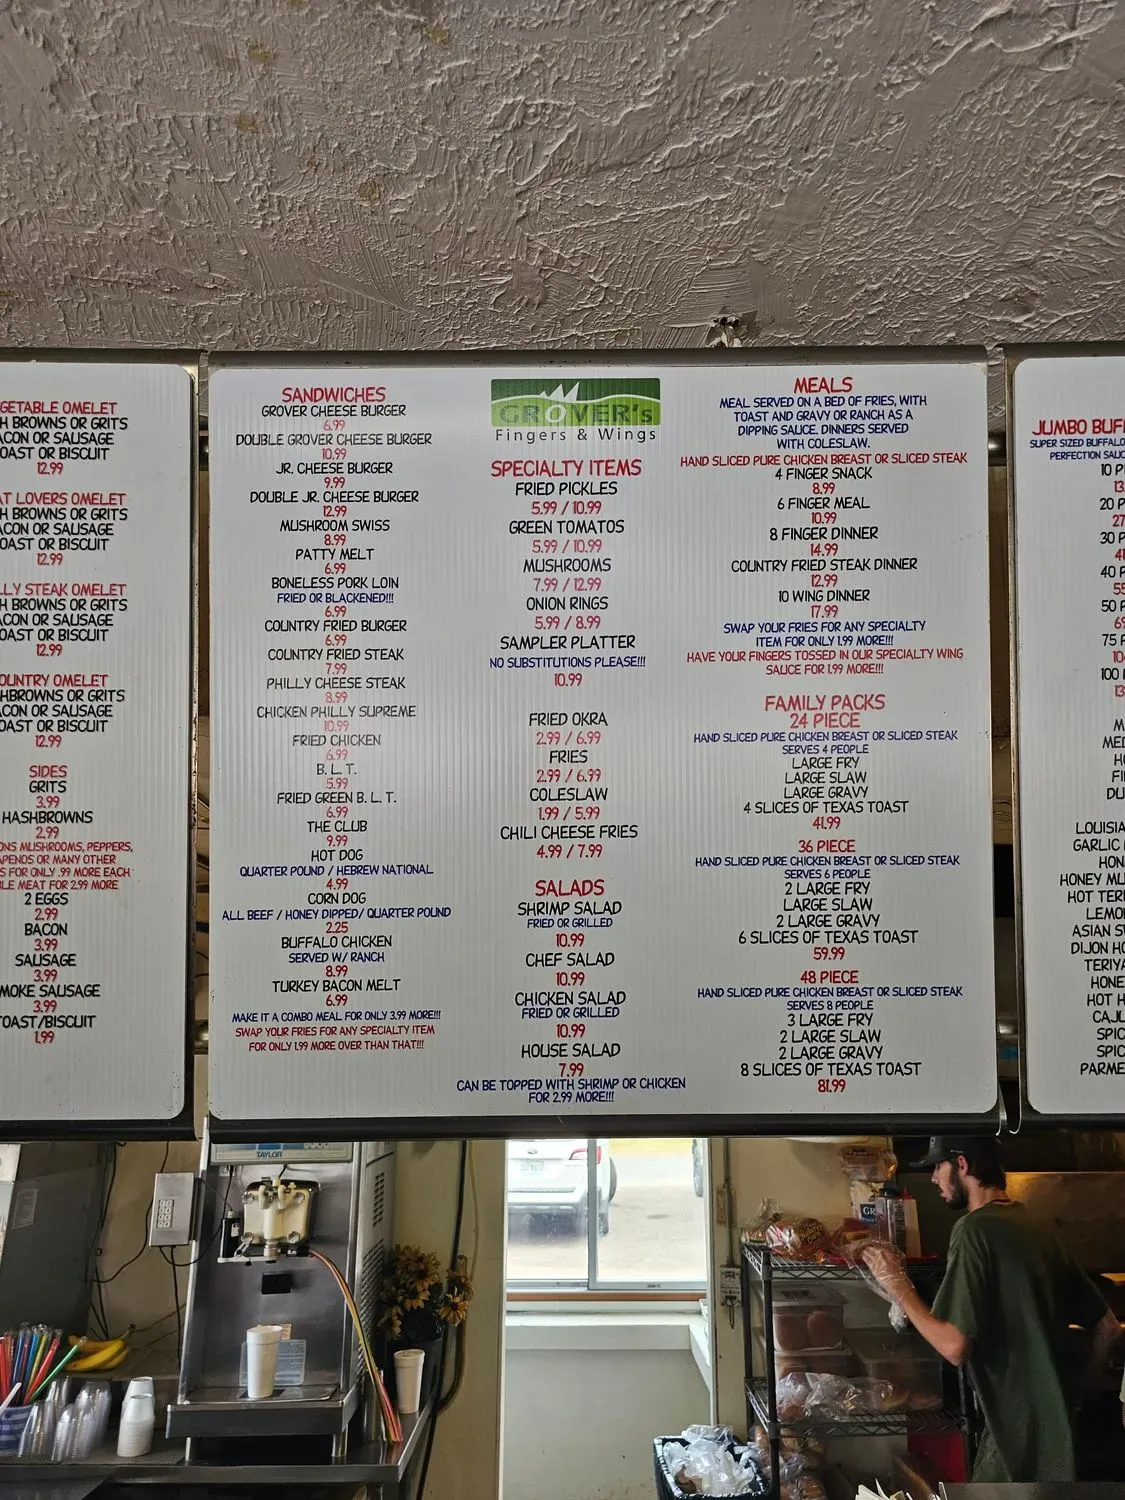 GETABLE OMELET
H BROWNS OR GRITS
ACON OR SAUSAGE
OAST OR BISCUIT
12.99
AT LOVERS OMELET
H BROWNS OR GRITS
ACON OR SAUSAGE
OAST OR BISCUIT
12.99
LLY STEAK OMELET
H BROWNS OR GRITS
ACON OR SAUSAGE
OAST OR BISCUIT
12.99
OUNTRY OMELET
HBROWNS OR GRITS
ACON OR SAUSAGE
OAST OR BISCUIT
12.99
SIDES
GRITS
3.99
HASHBROWNS
2.99
ONS MUSHROOMS, PEPPERS,
APENOS OR MANY OTHER
S FOR ONLY .99 MORE EACH
BLE MEAT FOR 2.99 MORE
2 EGGS
2.99
BACON
3.99
SAUSAGE
3.99
MOKE SAUSAGE
3.99
TOAST/BISCUIT
1.99
SANDWICHES
GROVER CHEESE BURGER
6.99
DOUBLE GROVER CHEESE BURGER
10.99
JR. CHEESE BURGER
9.99
DOUBLE JR. CHEESE BURGER
12.99
MUSHROOM SWISS
8.99
PATTY MELT
6.99
BONELESS PORK LOIN
FRIED OR BLACKENED!!!
6.99
COUNTRY FRIED BURGER
6.99
COUNTRY FRIED STEAK
7.99
PHILLY CHEESE STEAK
8.99
CHICKEN PHILLY SUPREME
10.99
FRIED CHICKEN
6.99
B. L. T.
5.99
FRIED GREEN B. L. T.
6.99
THE CLUB
9.99
HOT DOG
QUARTER POUND / HEBREW NATIONAL
4.99
CORN DOG
ALL BEEF / HONEY DIPPED/ QUARTER POUND
2.25
BUFFALO CHICKEN
SERVED W/ RANCH
8.99
TURKEY BACON MELT
6.99
MAKE IT A COMBO MEAL FOR ONLY 3.99 MORE!!!
SWAP YOUR FRIES FOR ANY SPECIALTY ITEM
FOR ONLY 1.99 MORE OVER THAN THAT!!!
GROVER's
Fingers & Wings
SPECIALTY ITEMS
FRIED PICKLES
5.99 / 10.99
GREEN TOMATOS
5.99 / 10.99
MUSHROOMS
7.99 / 12.99
ONION RINGS
5.99 / 8.99
SAMPLER PLATTER
NO SUBSTITUTIONS PLEASE!!!
10.99
FRIED OKRA
2.99 / 6.99
FRIES
2.99 / 6.99
COLESLAW
1.99 / 5.99
CHILI CHEESE FRIES
4.99 / 7.99
SALADS
SHRIMP SALAD
FRIED OR GRILLED
10.99
CHEF SALAD
10.99
CHICKEN SALAD
FRIED OR GRILLED
10.99
HOUSE SALAD
7.99
CAN BE TOPPED WITH SHRIMP OR CHICKEN
FOR 2.99 MORE!!!
MEALS
MEAL SERVED ON A BED OF FRIES, WITH
TOAST AND GRAVY OR RANCH AS A
DIPPING SAUCE. DINNERS SERVED
WITH COLESLAW.
HAND SLICED PURE CHICKEN BREAST OR SLICED STEAK
4 FINGER SNACK
8.99
6 FINGER MEAL
10.99
8 FINGER DINNER
14.99
COUNTRY FRIED STEAK DINNER
12.99
10 WING DINNER
17.99
SWAP YOUR FRIES FOR ANY SPECIALTY
ITEM FOR ONLY 1.99 MORE!!!
HAVE YOUR FINGERS TOSSED IN OUR SPECIALTY WING
SAUCE FOR 1.99 MORE!!!
FAMILY PACKS
24 PIECE
HAND SLICED PURE CHICKEN BREAST OR SLICED STEAK
SERVES 4 PEOPLE
LARGE FRY
LARGE SLAW
LARGE GRAVY
4 SLICES OF TEXAS TOAST
41.99
36 PIECE
HAND SLICED PURE CHICKEN BREAST OR SLICED STEAK
SERVES 6 PEOPLE
2 LARGE FRY
LARGE SLAW
2 LARGE GRAVY
6 SLICES OF TEXAS TOAST
59.99
48 PIECE
HAND SLICED PURE CHICKEN BREAST OR SLICED STEAK
SERVES 8 PEOPLE
3 LARGE FRY
2 LARGE SLAW
2 LARGE GRAVY
8 SLICES OF TEXAS TOAST
81.99
JUMBO BUFF
SUPER SIZED BUFFALO
PERFECTION SAUC
10 PI
13.
20 P
27
30 P
41
40 P
55
50 P
69
75 P
104
100 P
13
M
MED
HO
FI
DU
LOUISIA
GARLIC
HON
HONEY MU
HOT TERI
LEMO
ASIAN SW
DIJON HO
TERIYA
HONE
HOT H
CAJU
SPIC
SPIC
PARME
TAYLOR
GR